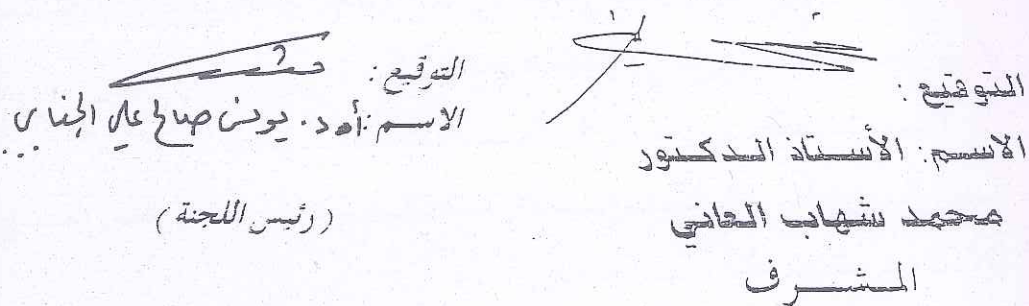 التوقيع :
الاسم: الأستاذ الدكتور
محمد شهاب العاني
المشرف
التوقيع :
الاسم : أ. د. يونس صالح علي الجنابي
( رئيس اللجنة )